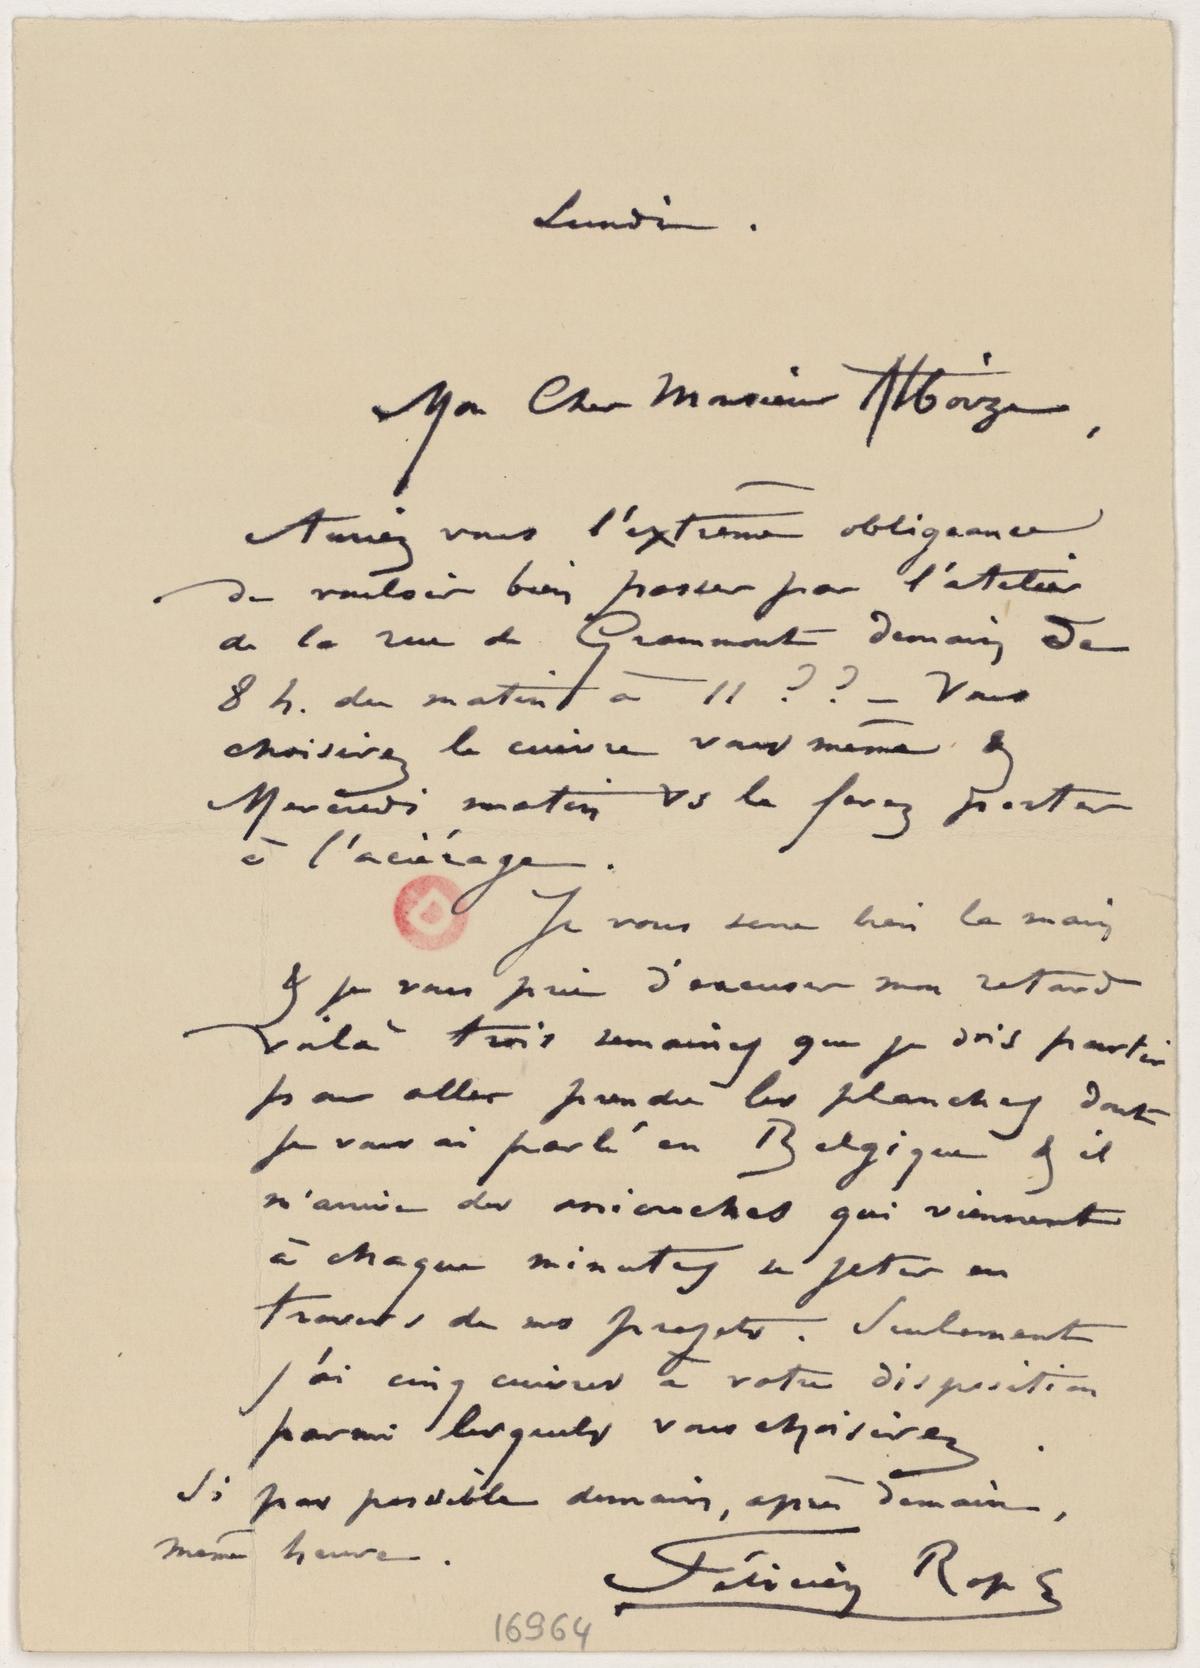 Lundi.
Mon Cher Monsieur
Auriez vous l'extrême obligeance
de vouloir bien passer par l'atelier
de la rue de Grammont demain de
8 h. du matin à 11 ?? – Vous
choisirez le cuivre vous même &
Mercredi matin Vs le ferez porter
à l'aciérage.
Je vous serre bien la main
& je vous prie d'excuser mon retard
voilà trois semaines que je dois partir
pour aller prendre les planches dont
je vous ai parlé en Belgique & il
m'arrive des anicroches qui viennent
à chaque minutes se jeter en
travers de mes projets. Seulement
j'ai cinq cuivres à votre disposition
parmi lesquels vous choisirez.
Si pas possible demain, après demain,
même heure.
Félicien Rops
16964